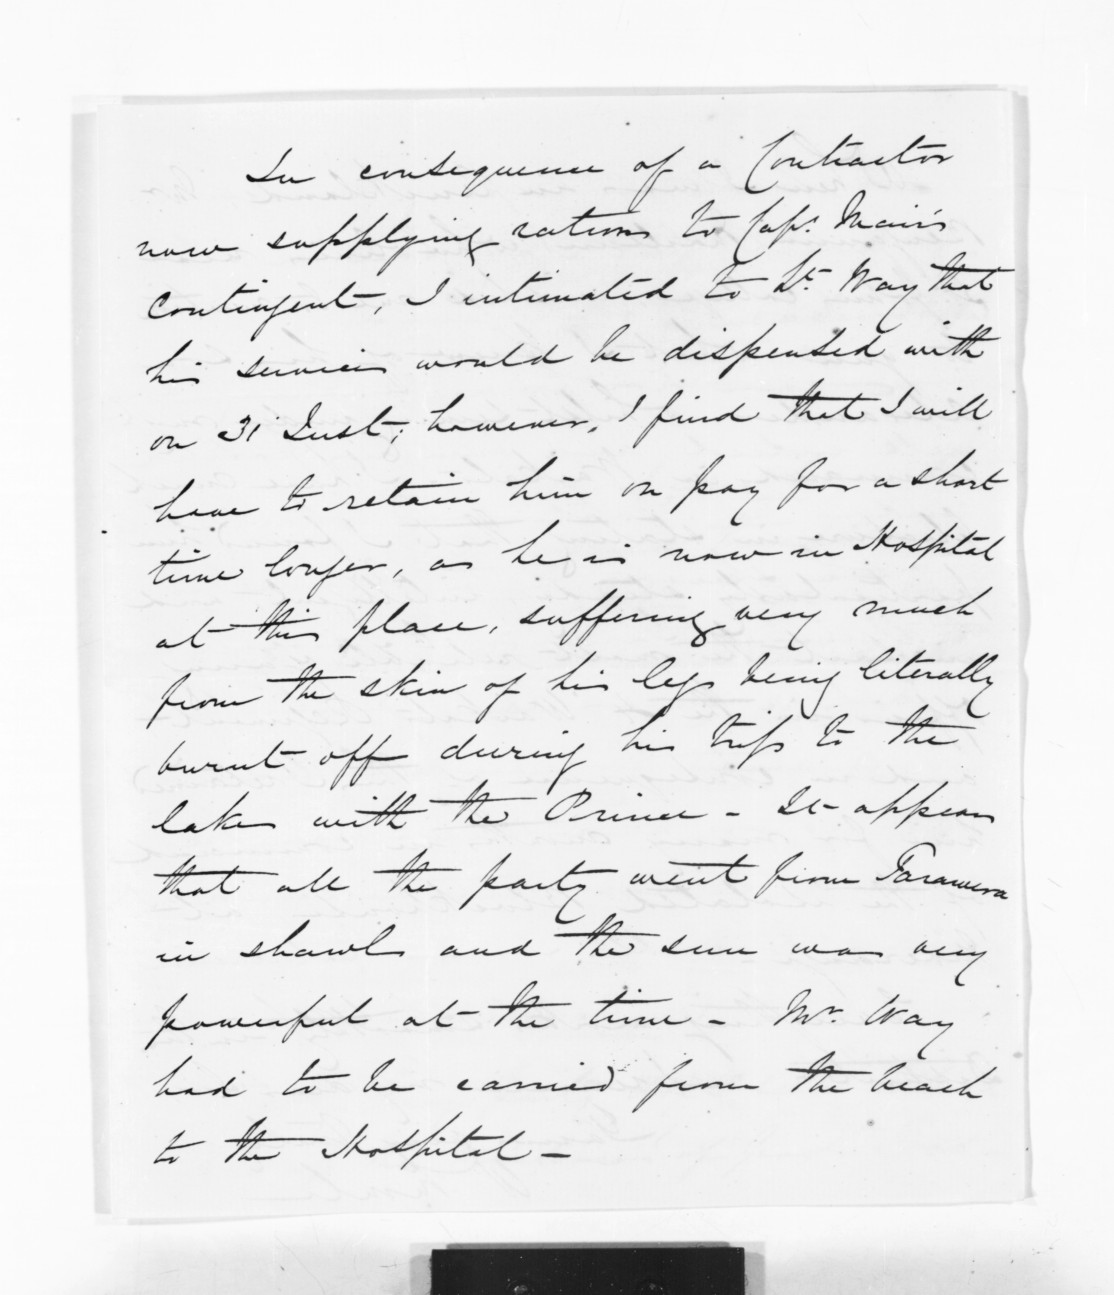 In consequence of a Contractor
now supplying rations to Capt. Mair's
Contingent, I intimated to Lt. Way that
his services would be dispensed with
on 31 Inst; however, I find that I will
have to retain him on pay for a short
time longer, as he is now in Hospital
at this place, suffering very much
from the skin of his legs being literally
burnt off during his trip to the
lakes with the Prince - It appears
that all the party went from Tarawera
in shawls and the sun was very
powerful at the time - Mr. Way
had to be carried from the beach
to the Hospital -